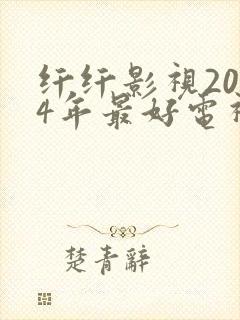 纤纤影視20
4年最好電
楚青辭